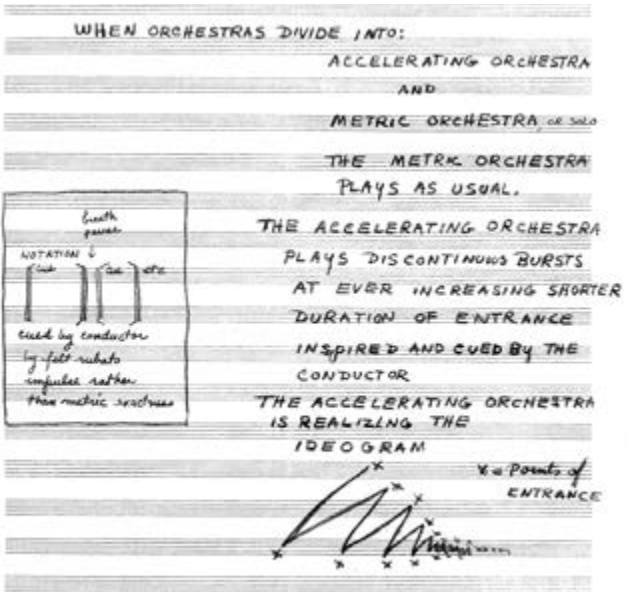 WHEN ORCHESTRAS DIVIDE INTO:
ACCELERATING ORCHESTRA
AND
METRIC ORCHESTRA, OR SOLO
THE METRIC ORCHESTRA
PLAYS AS USUAL.
THE ACCELERATING ORCHESTRA
PLAYS DISCONTINUOUS BURSTS
AT EVER INCREASING SHORTER
DURATION OF ENTRANCE
INSPIRED AND CUED BY THE
CONDUCTOR
THE ACCELERATING ORCHESTRA
IS REALIZING THE
IDEOGRAM
x = Points of
ENTRANCE
breath
pause
NOTATION
cue cue etc
cued by conductor
by felt rubato
impulse rather
than metric exactness